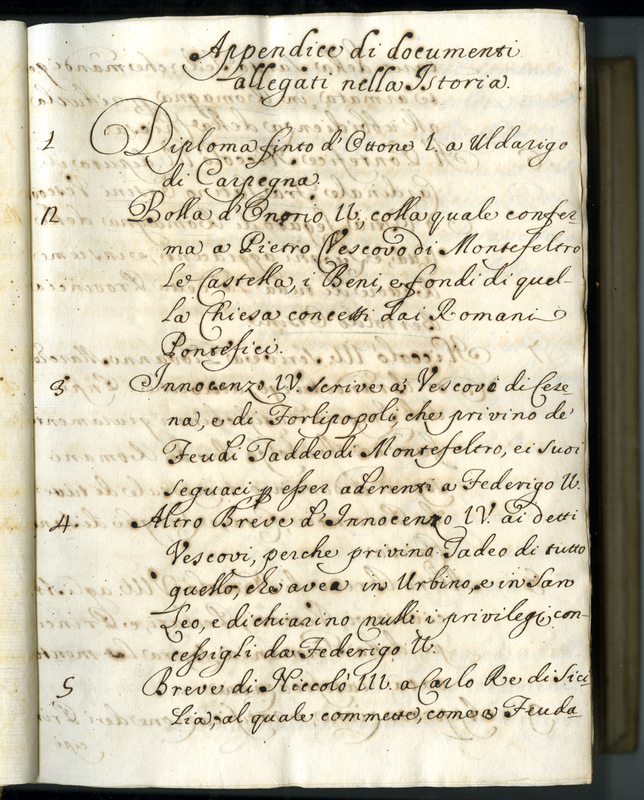 Appendice di documenti
allegati nella Istoria.
1 Diploma finto d'Ottone I. a Uldarigo
di Carpegna.
2 Bolla d'Onorio II, colla quale confer-
ma a Pietro Vescovo di Montefeltro
Le Castella, i Beni, e fondi di quel-
la Chiesa concessi dai Romani
Pontefici.
3 Innocenzo IV. scrive a' Vescovi di Cese-
na, e di Forlipopoli, che privino de'
Feudi Taddeo di Montefeltro, e i suoi
seguaci p esser aderenti a Federigo II.
4 Altro Breve d'Innocenzo IV. ai detti
Vescovi, perche privino Tadeo di tutto
quello, che avea in Urbino, e in San
Leo, e dichiarino nulli i privilegi con-
cessigli da Federigo II.
5 Breve di Niccolò III. a Carlo Re di Sici-
lia, al quale commette, come a Feuda-